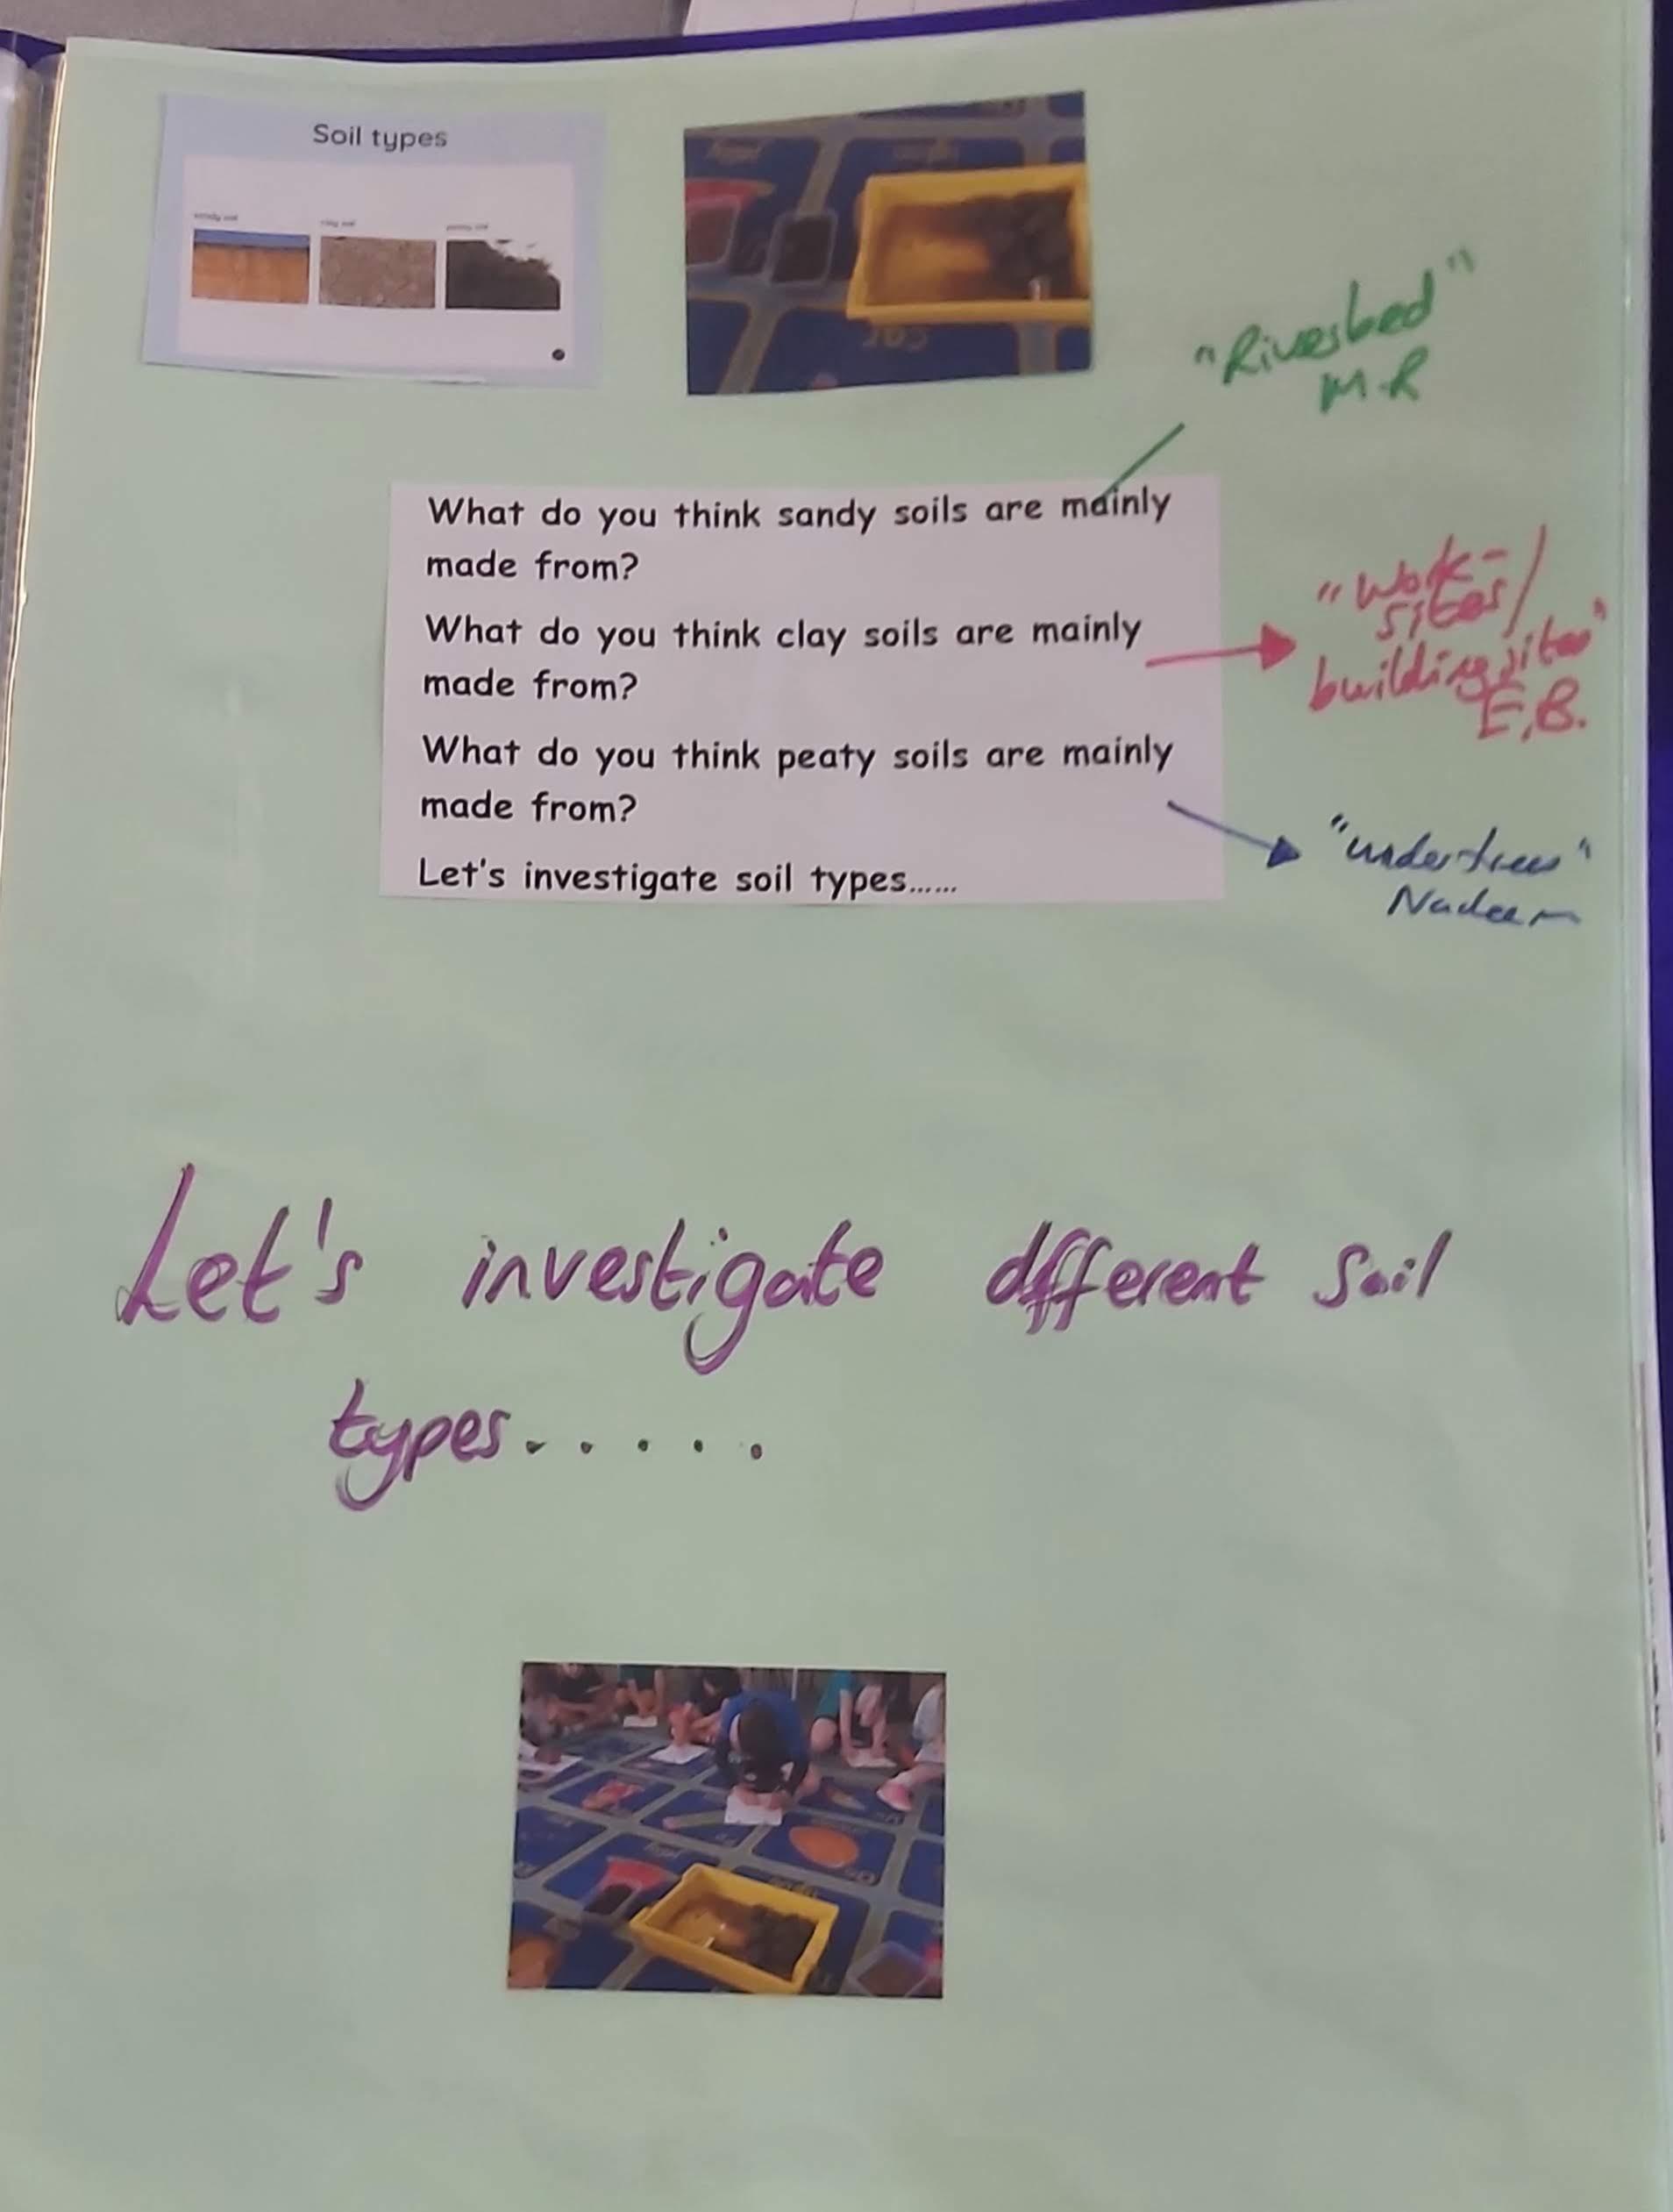 Soil types
sandy soil
clay soil
peaty soil
"Riverbed"
M.R
What do you think sandy soils are mainly
made from?
What do you think clay soils are mainly
made from?
What do you think peaty soils are mainly
made from?
Let's investigate soil types......
"Work-
sites/
building sites"
E.B.
"under trees"
Nadeem
Let's investigate different soil
types.....